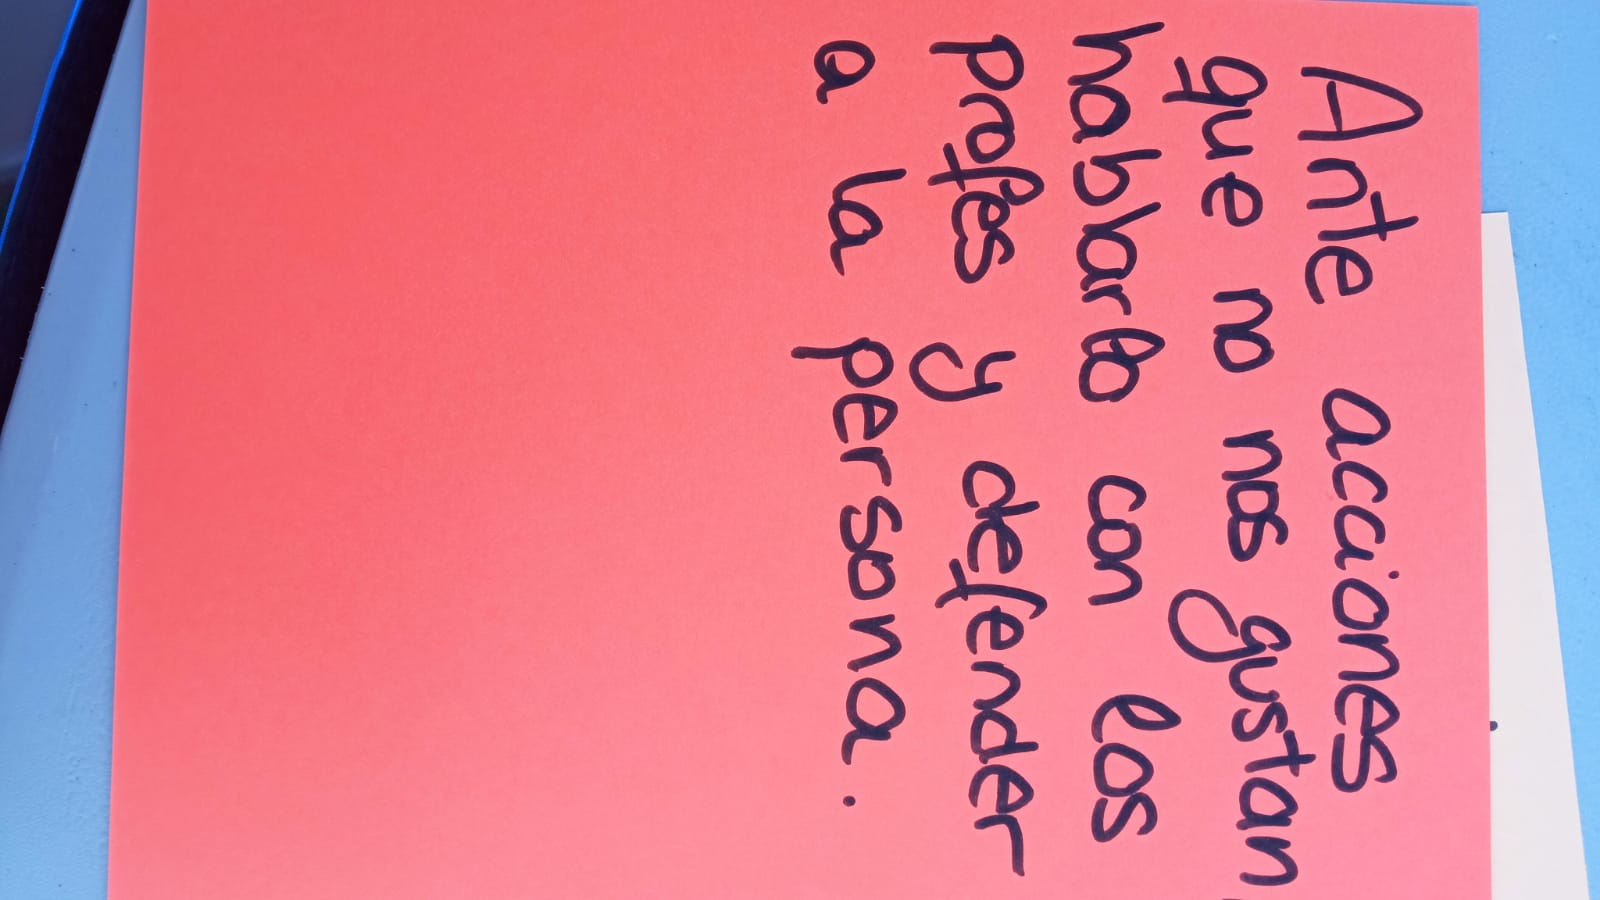 Ante acciones
que no nos gustan
hablarlo con los
profes y defender
a la persona.